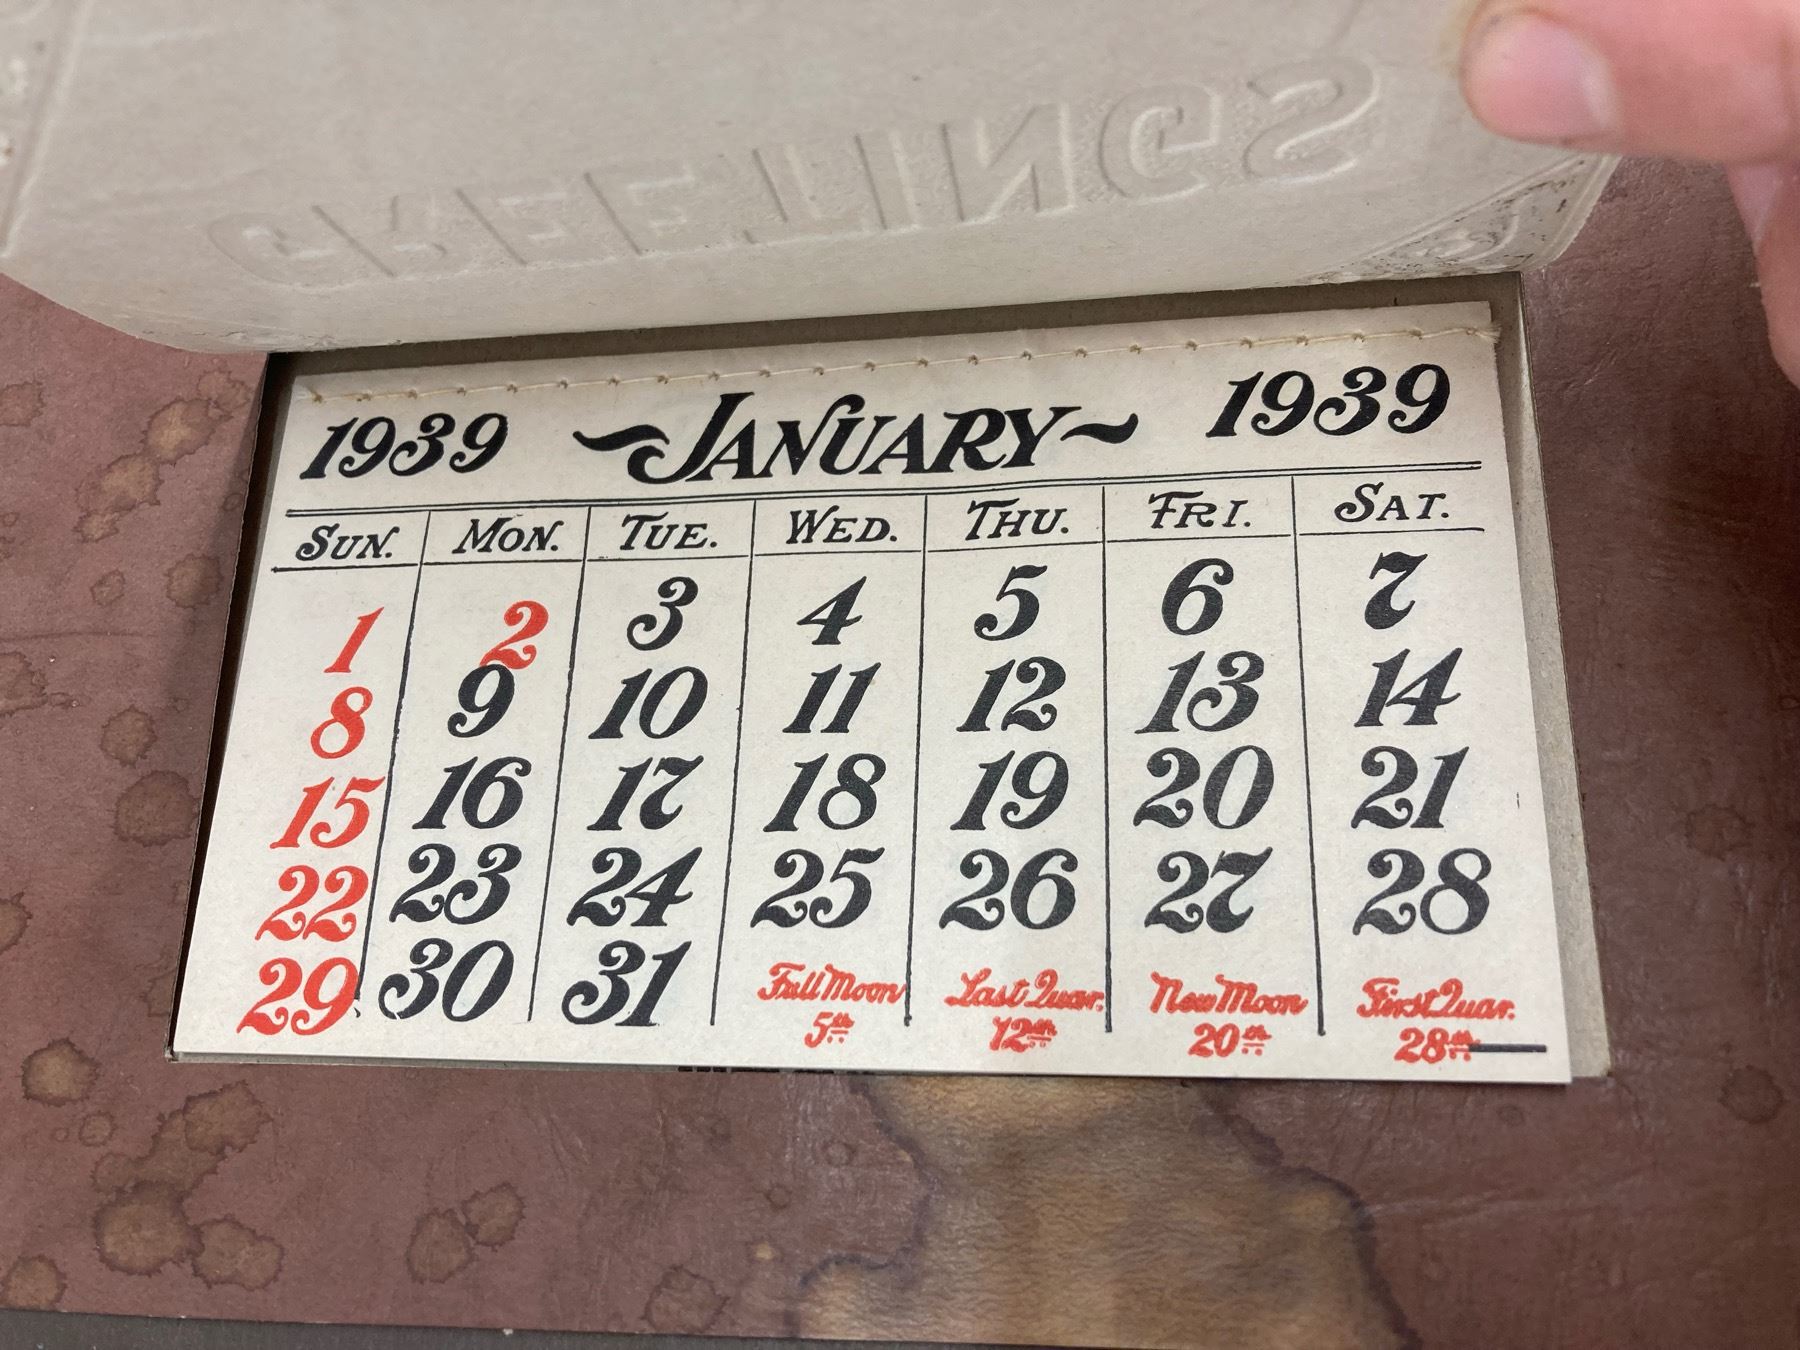 GREETINGS
1939 ~JANUARY~ 1939
SUN. MON. TUE. WED. THU. FRI. SAT.
1 2 3 4 5 6 7
8 9 10 11 12 13 14
15 16 17 18 19 20 21
22 23 24 25 26 27 28
29 30 31
Full Moon 5th
Last Quar. 12th
New Moon 20th
First Quar. 28th